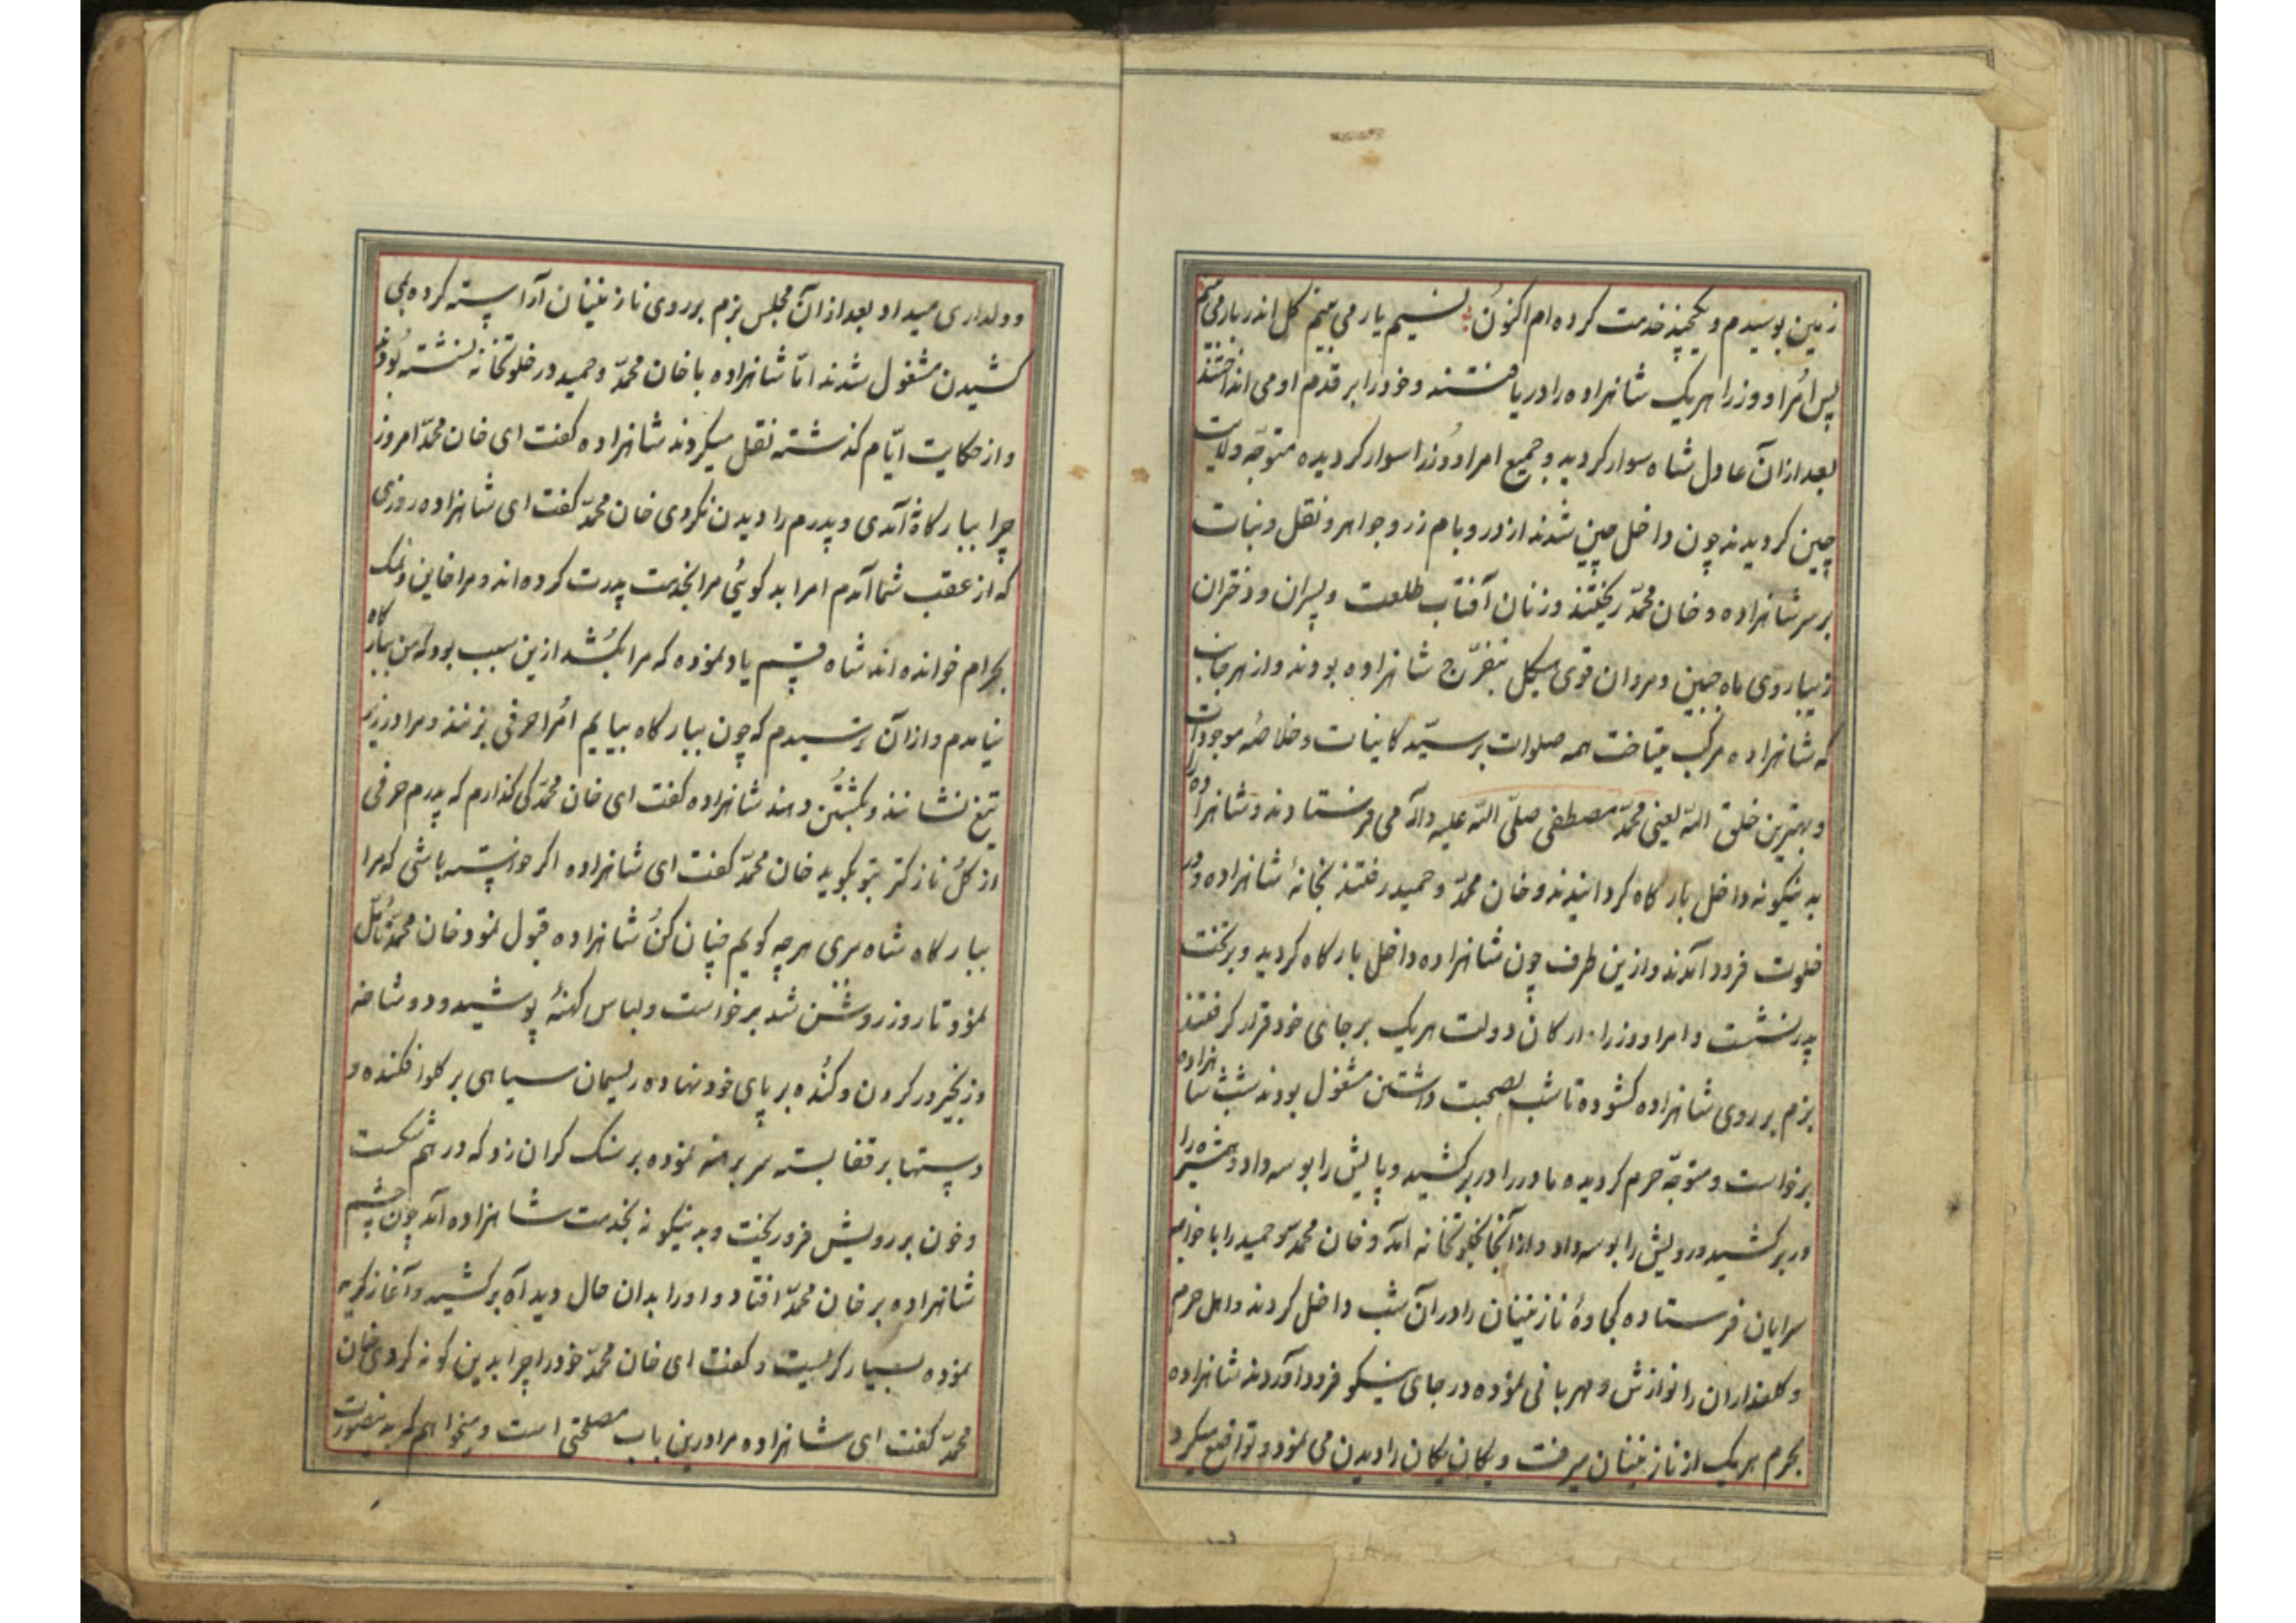 زمین بوسیدم و یکچند خدمت کرده ام اکنون نسیم یار می بینم کل اندر بار می بینم
پس امرا و وزرا هر یک شاهزاده را دریافتند و خود را بر قدم او می انداختند
بعد از آن عادل شاه سوار کردید و جمیع امرا و وزرا سوار کردیده متوجه ولایت
چین کردیدند چون داخل چین شدند از در و بام زر و جواهر و نقل و نبات
بر سر شاهزاده و خان محمد ریختند و زنان آفتاب طلعت و پسران و دختران
زیبا روی ماه جبین و مردان قوی هیکل بتفرج شاهزاده بودند و از هر جانب
که شاهزاده مرکب میتاخت همه صلوات بر سید کاینات و خلاصه موجودات
و بهترین خلق الله یعنی محمد مصطفی صلی الله علیه و آله می فرستادند و شاهزاده را
بدینکونه داخل بارکاه کردانیدند و خان محمد و حمید رفتند بخانه شاهزاده و در
خلوت فرود آمدند و ازین طرف چون شاهزاده داخل بارکاه کردید و بر تخت
پدر نشست و امرا و وزرا ارکان دولت هر یک بر جای خود قرار کرفتند
بزم بر روی شاهزاده کشوده تا شب بصحبت داشتن مشغول بودند شب شاهزاده
برخواست و متوجه حرم کردیده مادر را در بر کشید و پایش را بوسه داد و همشیره را
در بر کشید و رویش را بوسه داد و از آنجا بخلوتخانه آمد و خان محمد و حمید را با خواجه
سرایان فرستاده کجاوه نازنینان را در آن شب داخل کردند و اهل حرم
و کلعذاران را نوازش و مهربانی نموده در جای نیکو فرود آوردند شاهزاده
بحرم هر یک از نازنینان میرفت و یکان یکان را دیدن می نمود و تواضع میکرد
و دلداری میداد و بعد از آن مجلس بزم بر روی نازنینان آراسته کرده بمی
کشیدن مشغول شدند اما شاهزاده با خان محمد و حمید در خلوتخانه نشسته بودند
و از حکایت ایام کذشته نقل میکردند شاهزاده کفت ای خان محمد امروز
چرا ببارکاه آمدی و پدرم را دیدن نکردی خان محمد کفت ای شاهزاده روزی
که از عقب شما آمدم امرا بد کوئی مرا بخدمت پدرت کرده اند و مرا خاین و نمک
بحرام خوانده اند شاه قسم یاد نموده که مرا بکشد ازین سبب بود که من ببارکاه
نیامدم و از آن ترسیدم که چون ببارکاه بیایم امرا حرفی بزنند و مرا در زیر
تیغ نشانند و بکشتن دهند شاهزاده کفت ای خان محمد کی کذارم که پدرم حرفی
از کل نازکتر بتو بکوید خان محمد کفت ای شاهزاده اکر خواسته باشی که مرا
ببارکاه شاه بری هر چه کویم چنان کن شاهزاده قبول نمود خان محمد تامل
نمود تا روز روشن شد برخواست و لباس کهنه پوشید و دو شاخه
و زنجیر در کردن و کنده بر پای خود نهاده ریسمان سیاهی بر کلو افکنده و
دستها بر قفا بسته سر برهنه نموده بر سنک کران زد که در هم شکست
و خون بر رویش فرو ریخت و بدینکونه بخدمت شاهزاده آمد چون چشم
شاهزاده بر خان محمد افتاد و او را بدان حال دید آه بر کشید و آغاز کریه
نموده بسیار کریست و کفت ای خان محمد خود را چرا بدین کونه کردی خان
محمد کفت ای شاهزاده مرا درین باب مصلحتی است و میخواهم که بدینصورت